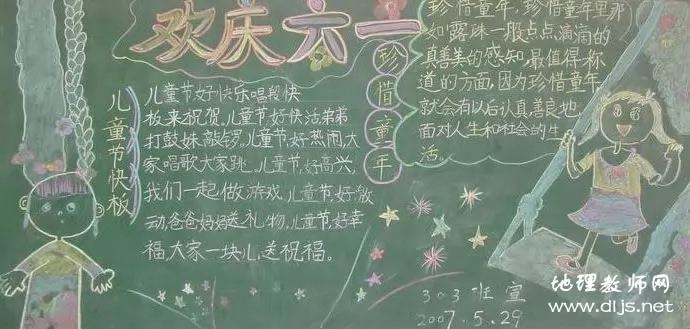 欢庆六一
儿童节快板
儿童节,好快乐,唱段快
板来祝贺,儿童节,好快活,弟弟
打鼓妹敲锣,儿童节,好热闹,大
家唱歌大家跳,儿童节,好高兴,
我们一起做游戏,儿童节,好激
动,爸爸妈妈送礼物,儿童节,好幸
福,大家一块儿送祝福。
珍惜童年
珍惜童年,珍惜童年里那
如露珠一般点点滴滴的
真善美的感知,最值得称
道的方面,因为珍惜童年
就会有以后认真善良地
面对人生和社会的生
活。
303班宣
2007.5.29
地理教师网
www.dljs.net